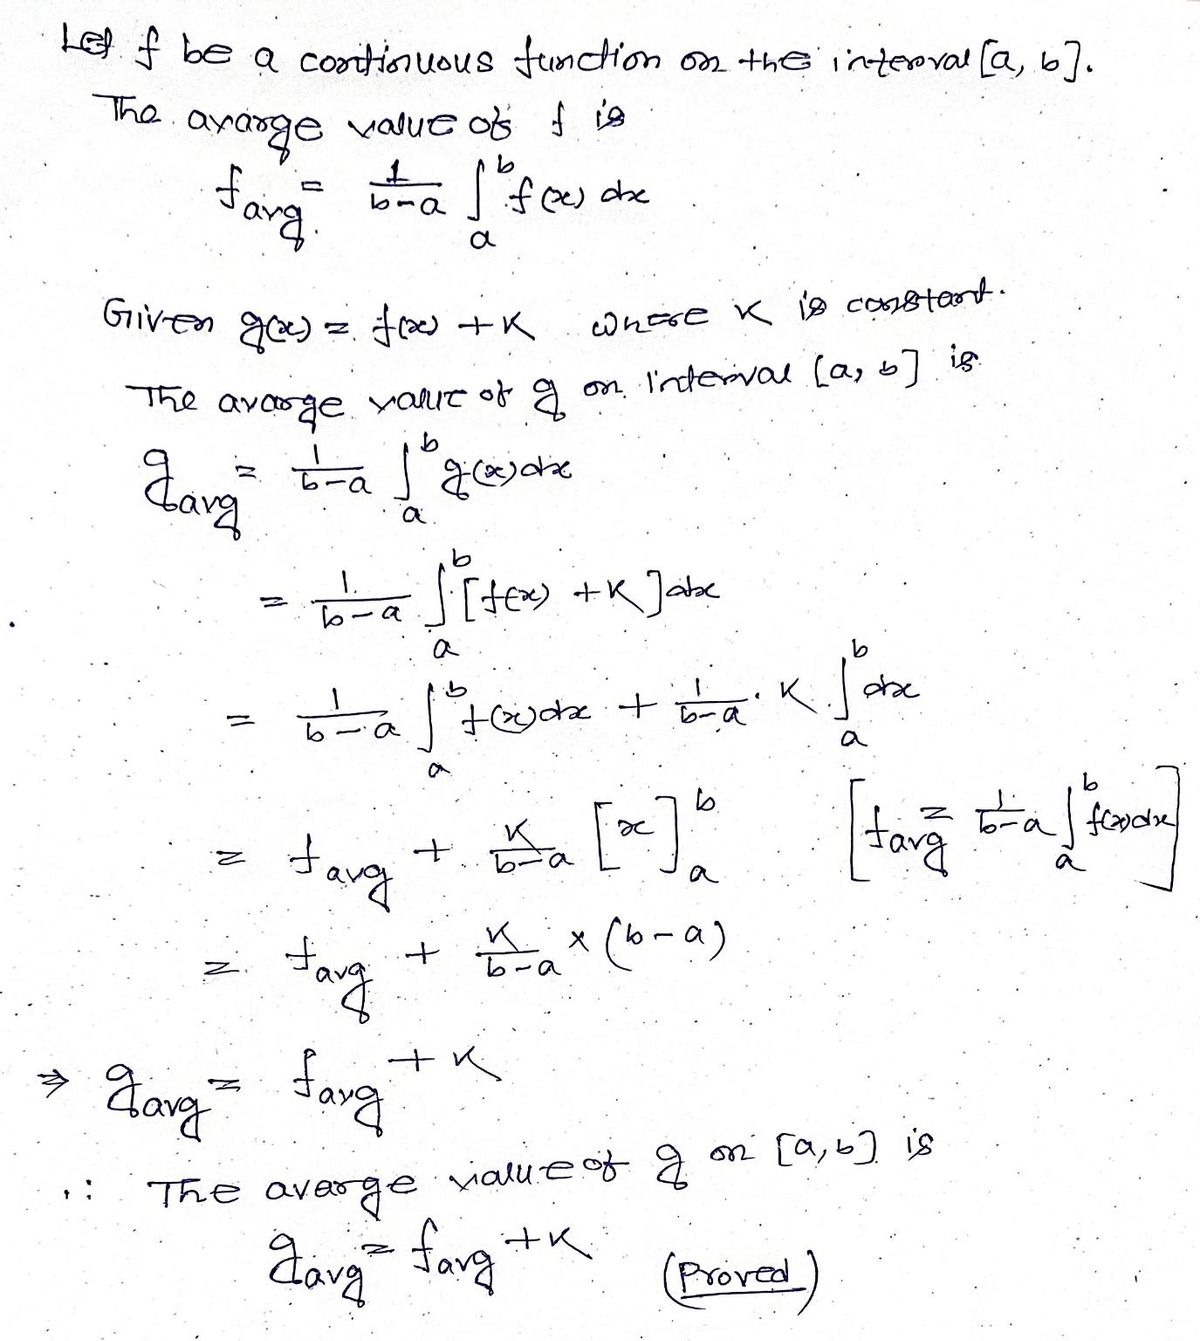 Let f be a continuous function on the interval [a, b].
The avarge value of f is
f_avg. = 1/(b-a) ∫_a^b f(x) dx
Given g(x) = f(x) + K where K is constant.
The avarge value of g on interval [a, b] is
g_avg = 1/(b-a) ∫_a^b g(x) dx
= 1/(b-a) ∫_a^b [f(x) + K] dx
= 1/(b-a) ∫_a^b f(x) dx + 1/(b-a) · K ∫_a^b dx
= f_avg + K/(b-a) [x]_a^b [f_avg = 1/(b-a) ∫_a^b f(x) dx]
= f_avg + K/(b-a) × (b-a)
⇒ g_avg = f_avg + K
∴ The avarge value of g on [a, b] is
g_avg = f_avg + K (Proved)